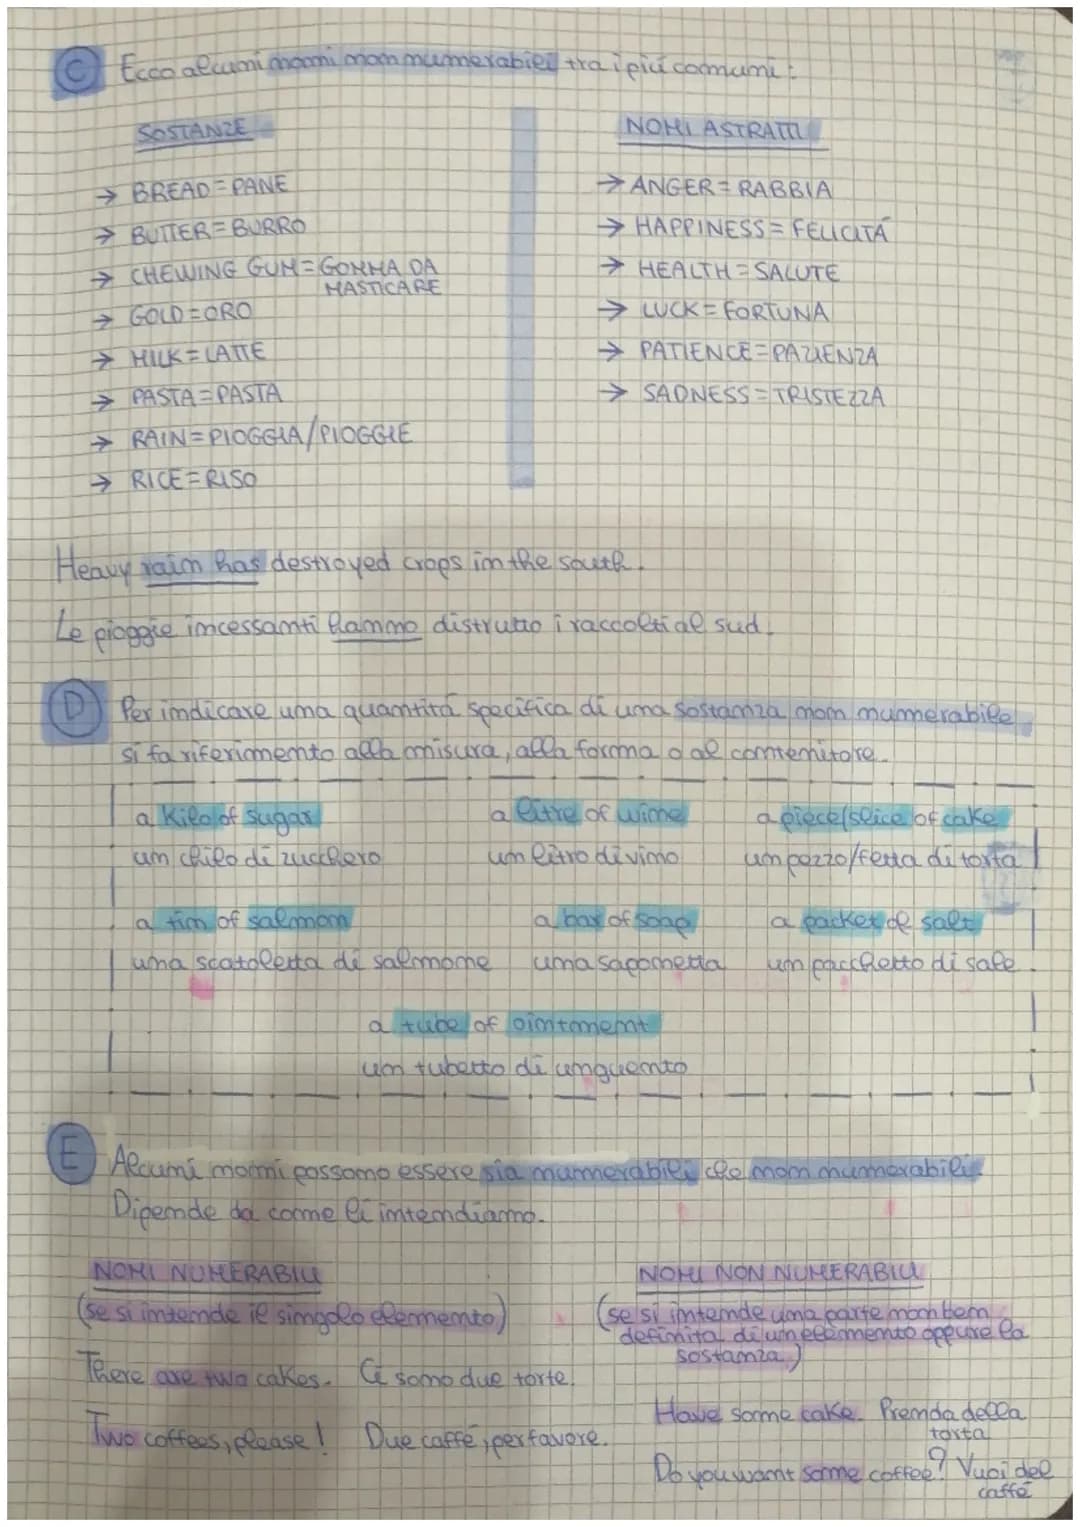 C Ecco alcuni nomi non numerabili tra i più comuni:
SOSTANZE
→ BREAD = PANE
→ BUTTER = BURRO
→ CHEWING GUM = GOMMA DA
MASTICARE
→ GOLD = ORO
→ MILK = LATTE
→ PASTA = PASTA
→ RAIN = PIOGGIA/PIOGGIE
→ RICE = RISO
NOMI ASTRATTI
→ ANGER = RABBIA
→ HAPPINESS = FELICITÁ
→ HEALTH = SALUTE
→ LUCK = FORTUNA
→ PATIENCE = PAZIENZA
→ SADNESS = TRISTEZZA
Heavy rain has destroyed crops in the south.
Le pioggie incessanti hanno distrutto i raccolti al sud.
D Per indicare una quantitá specifica di una sostanza non numerabile
si fa riferimento alla misura, alla forma o al contenitore.
a kilo of sugar a litre of wine a piece/slice of cake
un chilo di zucchero un litro di vino un pezzo/fetta di torta
a tin of salmon a bar of soap a packet of salt
una scatoletta di salmone una saponetta un pacchetto di sale.
a tube of ointment
un tubetto di unguento
E Alcuni nomi possono essere sia numerabili che non numerabili.
Dipende da come li intendiamo.
NOMI NUMERABILI
(se si intende il singolo elemento)
There are two cakes. Ci sono due torte.
Two coffees, please! Due caffé, per favore.
NOMI NON NUMERABILI
(se si intende una parte non ben
definita di un elemento oppure la
sostanza.)
Have some cake. Prenda della
torta
Do you want some coffee? Vuoi del
caffé